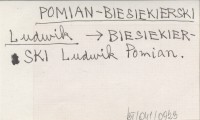 POMIAN-BIESIEKIERSKI
Ludwik → BIESIEKIER-
SKI Ludwik Pomian.